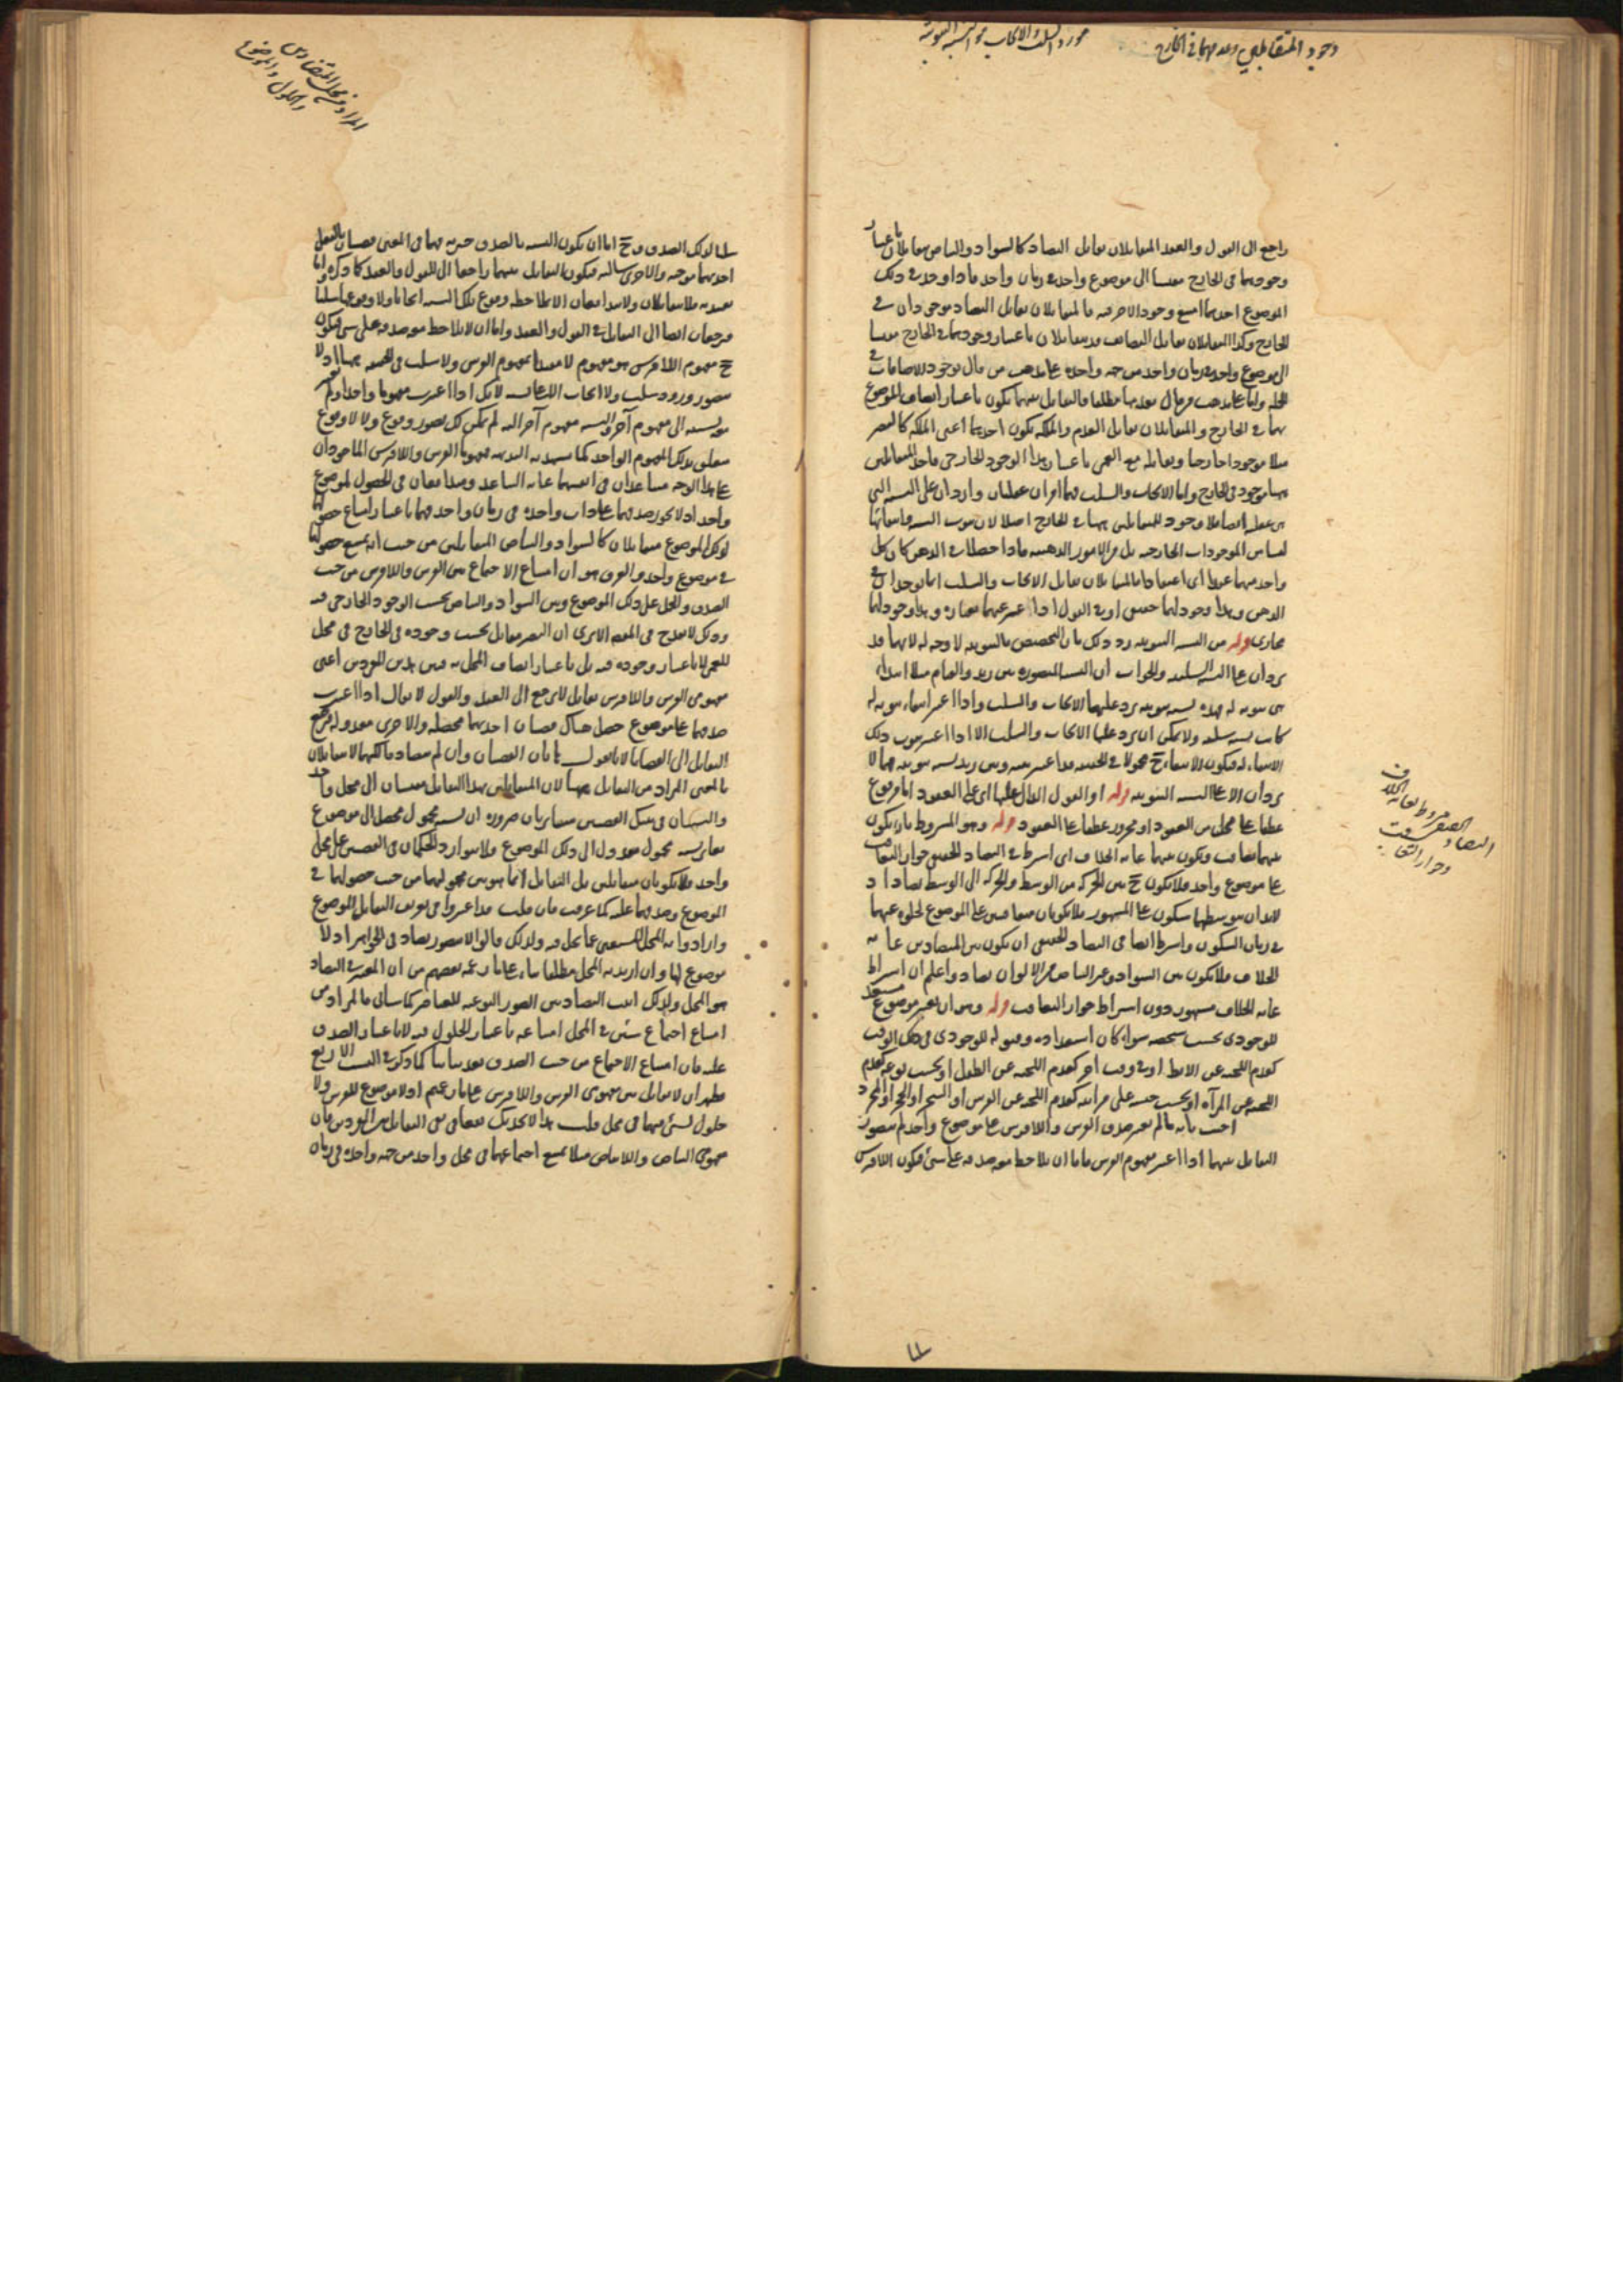 وجود المتقابلين وعدمهما في الخارج
مورد السلب والايجاب هو النسبة الثبوتية
راجع الى القول والعقد المتقابلان تقابل التضاد كالسواد والبياض متقابلان باعتبار
وجودهما في الخارج مقيسا الى موضوع واحد في زمان واحد فاذا وجد في ذلك
الموضوع احدهما امتنع وجود الاخر فيه فالمتقابلان تقابل التضاد موجودان في
الخارج وكذا المتقابلان تقابل التضايف قد يتقابلان باعتبار وجودهما في الخارج مقيسا
الى موضوع واحد في زمان واحد من جهة واحدة على مذهب من قال بوجود الاضافات في
الجملة واما على مذهب من قال بعدمها مطلقا فالتقابل بينهما يكون باعتبار اتصاف الموضوع
بهما في الخارج والمتقابلان تقابل العدم والملكة يكون احدهما اعني الملكة كالبصر
مثلا موجودا خارجيا وتقابله مع العمى باعتبار هذا الوجود الخارجي فاحد المتقابلين
ههنا موجود في الخارج واما الايجاب والسلب فهما امران عقليان واردان على النسبة التي
هي عقلية ايضا فلا وجود للمتقابلين ههنا في الخارج اصلا لان ثبوت النسبة وانتفائها
ليسا من الموجودات الخارجية بل من الامور الذهنية فاذا حصلا في الذهن كان كل
واحد منهما عقدا اى اعتقادا فالمتقابلان تقابل الايجاب والسلب انما يوجدان في
الذهن وهذا وجود لهما حقيقي او في القول اذا عبر عنهما بعبارة وهذا وجود لهما
مجازى قوله من النسبة الثبوتية رد ذلك بان التخصيص بالثبوتية لا وجه له لانهما قد
يردان على النسبة السلبية والجواب ان النسبة المتصورة بين زيد والقيام مثلا ابتداء
هي ثبوته له فهذه نسبة ثبوتية يرد عليها الايجاب والسلب واذا اعتبر انتفاء ثبوته له
كانت نسبة سلبية ولا يمكن ان يرد عليها الايجاب والسلب الا اذا اعتبر ثبوت ذلك
الانتفاء له فيكون الانتفاء ح محمولا في الحقيقة قد اعتبر بينه وبين زيد نسبة ثبوتية فهما لا
يردان الا على النسبة الثبوتية قوله او القول الدال عليها اى على العقود اما مرفوع
عطفا على محل من العقود او مجرور عطفا على العقود قوله وهو المشروط بان يكون
بينهما تعاقب ويكون بينهما غاية الخلاف اى اشترط في التضاد الحقيقي جواز التعاقب
على موضوع واحد فلا يكون ح بين الحركة من الوسط والحركة الى الوسط تضاد اذ
لابد ان يتوسطهما سكون على المشهور فلا يكونان متعاقبين على الموضوع لخلوه عنهما
في زمان السكون واشترط ايضا في التضاد الحقيقي ان يكون بين المتضادين غاية
الخلاف فلا يكون بين السواد وغير البياض من الالوان تضاد واعلم ان اشتراط
غاية الخلاف مشهور دون اشتراط جواز التعاقب قوله وهو ان يعتبر موضوع مستعد
للوجودى بحسب شخصه سواء كان استعداده وقبوله للوجودى في ذلك الوقت
كعدم اللحية عن الاثط او في وقت اخر كعدم اللحية عن الطفل او بحسب نوعه كعدم
اللحية عن المرآة او بحسب جنسه على مراتبه كعدم اللحية عن الفرس او الشجر او الحجر او المجرد
اجيب بانه ما لم يعتبر صدق الفرس واللافرس على موضوع واحد لم يتصور
التقابل بينهما اذا اعتبر مفهوم الفرس فاما ان يلاحظ معه صدقه على شئ فيكون اللافرس
التضاد الحقيقي مشروط بغاية الخلاف
وجواز التعاقب
المراد من محل المتضادين
والحلول والموضوع
سلبا لذلك الصدق وح اما ان يكون النسبة بالصدق خبرية فهما في المعنى قضيتان بالفعل
احديهما موجبة والاخرى سالبة فيكون التقابل بينهما راجعا الى القول والعقد كما ذكره واما
تقييدية فلا يتقابلان ولا يتدافعان الا بملاحظة وقوع تلك النسبة ايجابا ولا وقوعها سلبا
فيرجعان ايضا الى التقابل في القول والعقد واما ان لا يلاحظ معه صدقه على شئ فيكون
ح مفهوم اللافرس هو مفهوم لا مقيدا بمفهوم الفرس ولا سلب في الحقيقة ههنا اذ لا
يتصور ورود سلب ولا ايجاب الا على نسبة لانك اذا اعتبرت مفهوما واحدا ولم تعتبر
معه نسبته الى مفهوم آخر ولا نسبة مفهوم آخر اليه لم يمكن لك تصور وقوع ولا لا وقوع
متعلق بذلك المفهوم الواحد كما يشهد به البديهة فمفهوما الفرس واللافرس الماخوذان
على هذا الوجه متباعدان في انفسهما غاية التباعد ومتدافعان في الحصول لموضوع
واحد اذ لا يجوز صدقهما على ذات واحدة في زمان واحد فهما باعتبار امتناع حصولهما
لذلك الموضوع متقابلان كالسواد والبياض المتقابلين من حيث انه يمتنع حصولهما
في موضوع واحد والفرق هو ان امتناع الاجتماع بين الفرس واللافرس من حيث
الصدق والحمل على ذلك الموضوع وبين السواد والبياض بحسب الوجود الخارجي فيه
وذلك لا يقدح في المقصود الا يرى ان البصر متقابل بحسب وجوده في الخارج في محل
للعمى لا باعتبار وجوده فيه بل باعتبار اتصاف المحل به فبين هذين المفردين اعني
مفهومى الفرس واللافرس تقابل لا يرجع الى العقد والقول لا يقال اذا اعتبرت
صدقهما على موضوع حصل هناك قضيتان احديهما محصلة والاخرى معدولة فيرجع
التقابل الى القضايا لانا نقول هاتان القضيتان وان لم تتصادقا لكنهما لا يتقابلان
بالمعنى المراد من التقابل ههنا لان المتقابلين بهذا التقابل مقيسان الى محل واحد
والنسبتان في تينك القضيتين متغايرتان ضرورة ان نسبة محمول محصل الى موضوع
تغاير نسبة محمول معدول الى ذلك الموضوع ولا يتوارد الحكمان في القضيتين على محل
واحد فلا يكونان متقابلين بل التقابل انما هو بين محموليهما من حيث حصولهما في
الموضوع وصدقهما عليه كما عرفت فان قلت قد اعتبروا في تعريف التقابل الموضوع
وارادوا به المحل المستغنى عما يحل فيه ولذلك قالوا لا يتصور تضاد في الجواهر اذ لا
موضوع لها وان اريد به المحل مطلقا بناء على ما زعمه بعضهم من ان المعتبر في التضاد
هو المحل ولذلك اثبت التضاد بين الصور النوعية للعناصر كما سيأتى فالمراد من
امتناع اجتماع شيئين في المحل امتناعه باعتبار الحلول فيه لا باعتبار الصدق
عليه فان امتناع الاجتماع من حيث الصدق يعد تباينا كما ذكر في النسب الاربع
فظهر ان لا تقابل بين مفهومى الفرس واللافرس على ما زعمتم اذ لا موضوع للفرس ولا
حلول لشئ منهما في محل قلت هذا لا يجديك نفعا في نفى التقابل بين المفردين فان
مفهومى البياض واللابياض مثلا يمتنع اجتماعهما في محل واحد من جهة واحدة في زمان